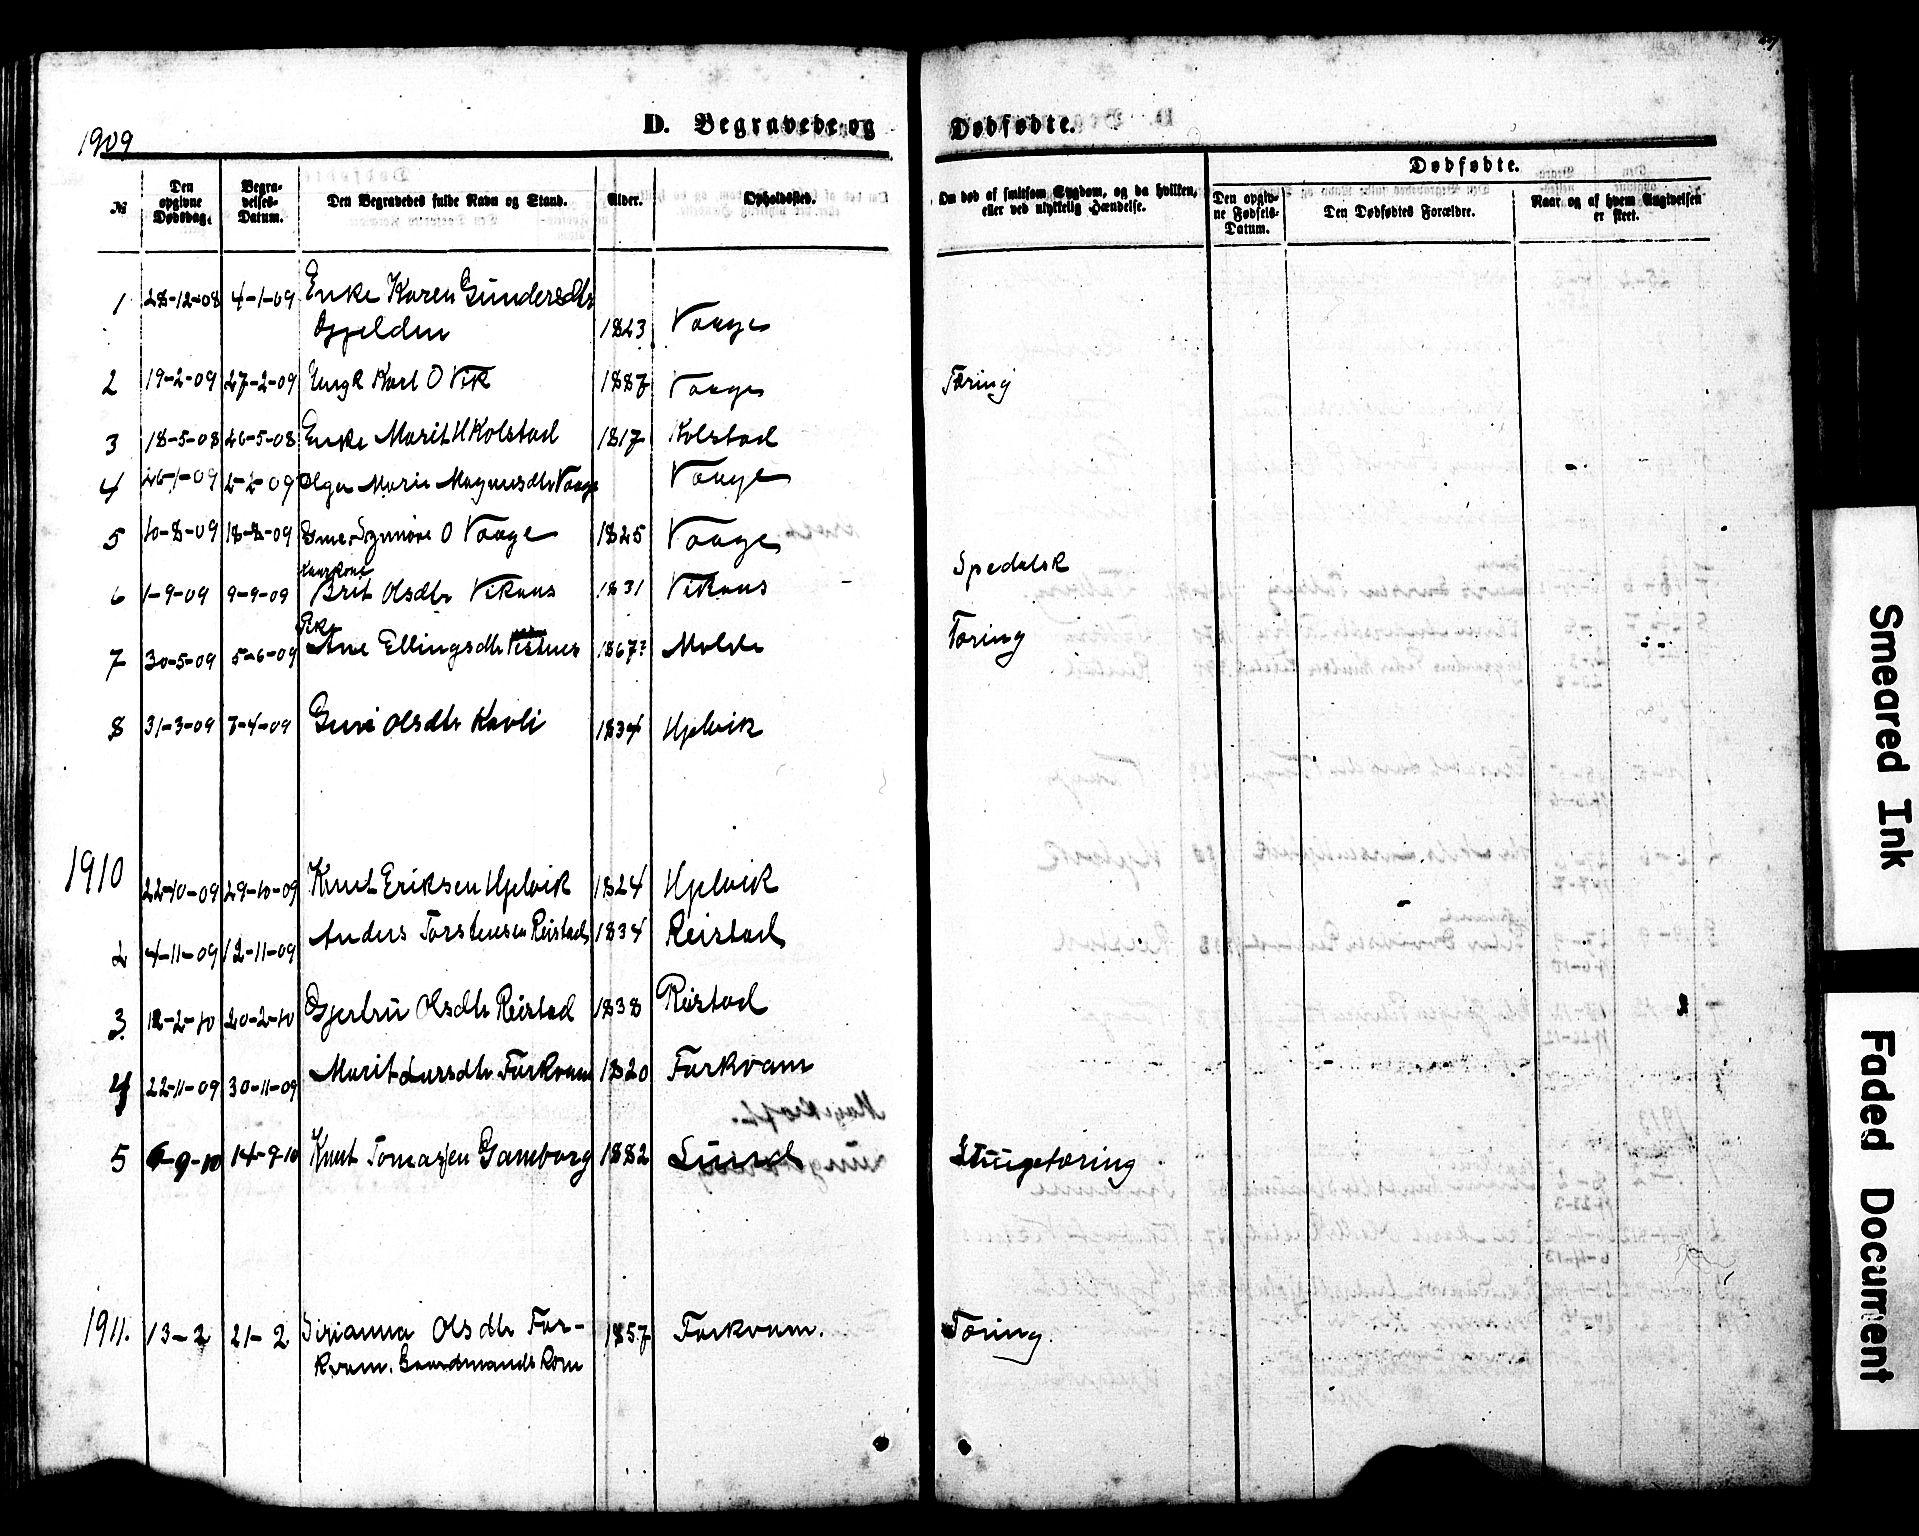 1909
D. Begravede og Dødfødte.
№ | Den opgivne Dødsdag. | Begravelses-Datum. | Den Begravedes fulde Navn og Stand. | Alder. | Opholdssted. | Om død af smitsom Sygdom, og da hvilken, eller ved ulykkelig Hændelse. | Dødfødte.
Den opgivne Fødsels-Datum. | Den Dødfødtes Forældre. | Naar og af hvem Angivelsen er skeet.
1 28-12-08 4-1-09 Enke Karen Gundersdtr
1823 Vaage
2 19-2-09 27-2-09 Ungk Karl O Vik 1887 Vaage Tæring
3 18-5-08 26-5-08 Enke Marit H Kolstad 1817 Kolstad
4 26-1-09 2-2-09 Olga Marie Magnusdtr Vaage Vaage
5 10-8-09 18-8-09 O Vaage 1825 Vaage
Spedalsk
6 1-9-09 9-9-09 Brit Olsdtr Vikans 1831 Vikans
Pike
7 30-5-09 5-6-09 Ane Ellingsdtr 1867? Molde Tæring
8 31-3-09 7-4-09 Guri Olsdtr Kavli 1834 Hjelvik
1910
22-10-09 29-10-09 Knut Eriksen Hjelvik 1824 Hjelvik
2 4-11-09 12-11-09 Anders Torstensen Reistad 1834 Reistad
3 12-2-10 20-2-10 Gjertru Olsdtr Reistad 1838 Reistad
4 22-11-09 30-11-09 Marit Larsdtr Farkvam 1820 Farkvam
5 6-9-10 14-9-10 Knut Tomasen Gamborg 1882 Lund
1911. 13-2 21-2 Sirianna Olsdtr Far-
kvam. Gaardmands Kone 1857 Farkvam. Tæring.
Smeared Ink
Faded Document